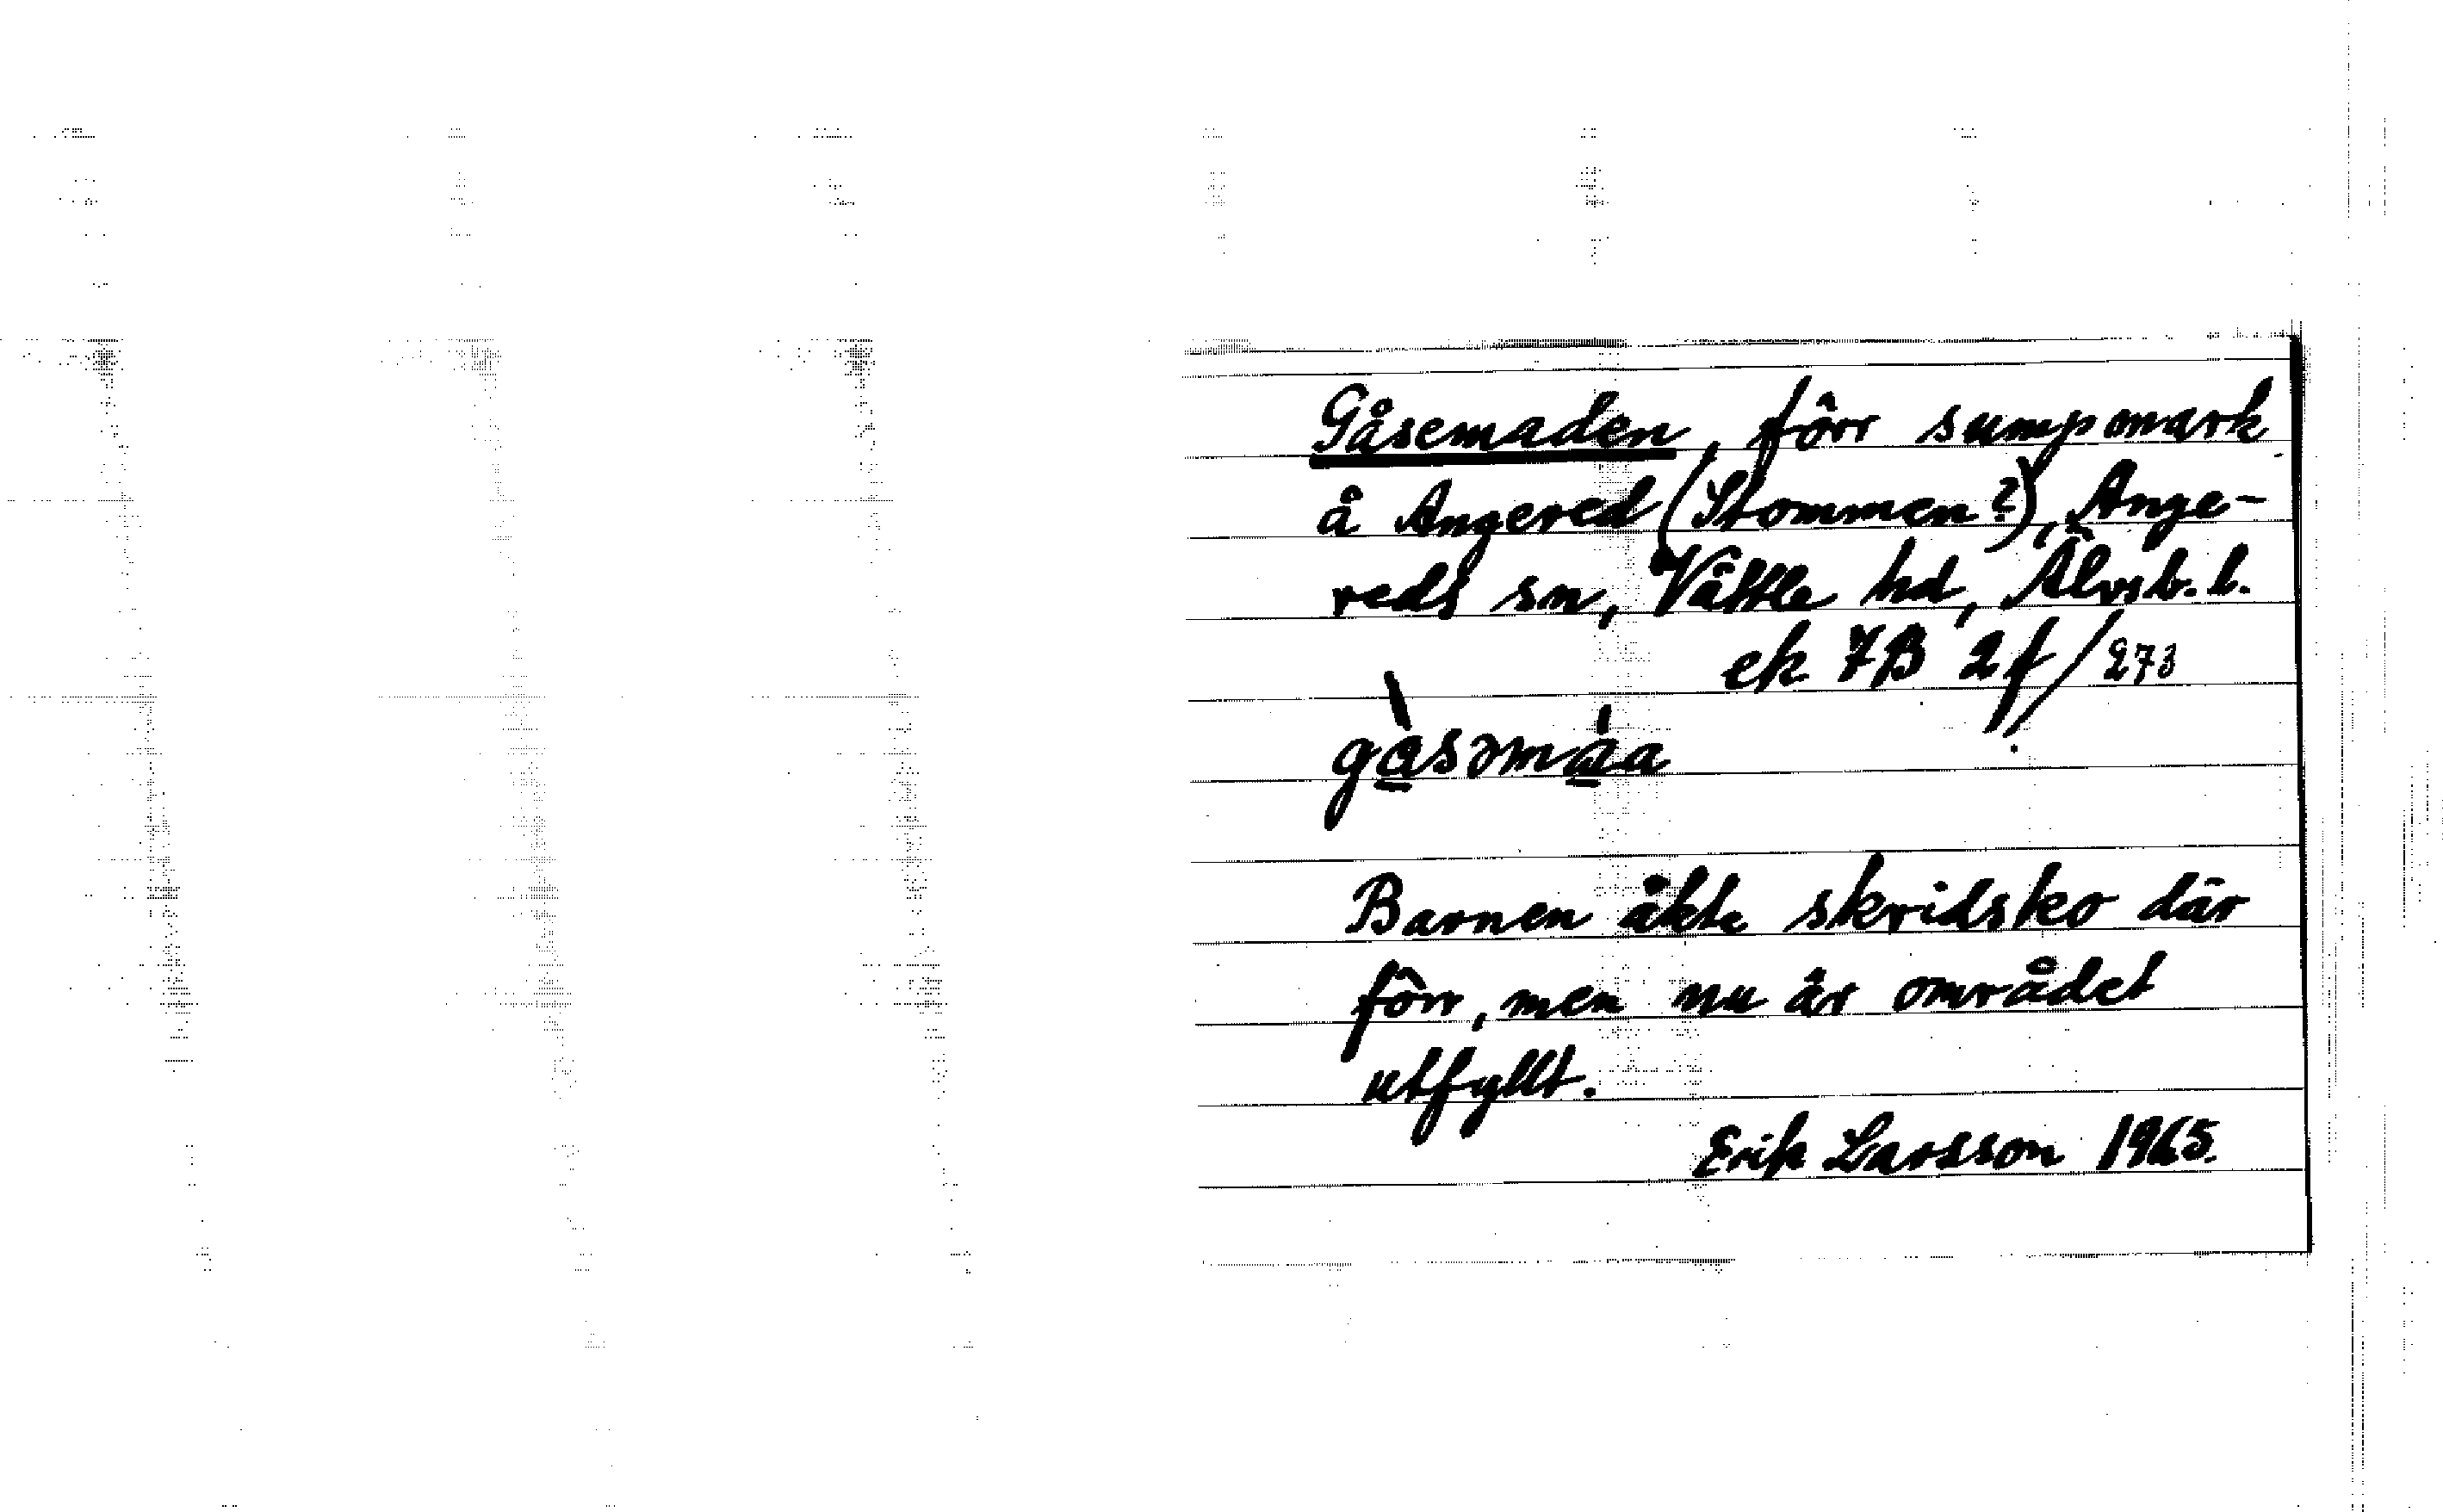 Gåsemaden, förr sumpmark
å Angered (Stommen?), Ange-
reds sn, Vättle hd, Älvsb. l.
ek 7B 2f/273
gàsəmáa
Barnen åkte skridsko där
förr, men nu är området
utfyllt.
Erik Larsson 1965.